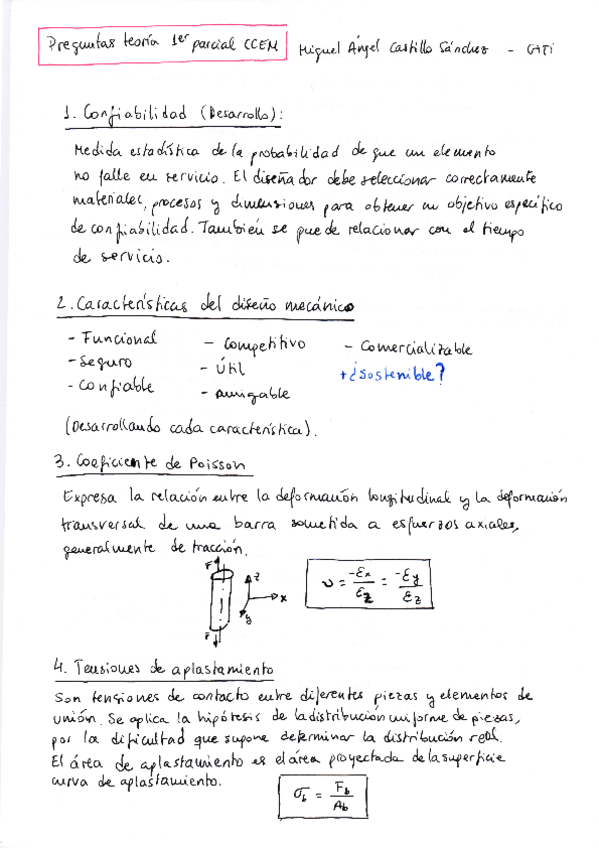 Preguntas teoría 1er parcial CCEM
Miguel Ángel Castillo Sánchez - GITI
1. Confiabilidad (Desarrollo):
Medida estadística de la probabilidad de que un elemento
no falle en servicio. El diseñador debe seleccionar correctamente
materiales, procesos y dimensiones para obtener un objetivo específico
de confiabilidad. También se puede relacionar con el tiempo
de servicio.
2. Características del diseño mecánico
- Funcional - Competitivo - Comercializable
- Seguro - Útil +¿Sostenible?
- Confiable - Amigable
(Desarrollando cada característica).
3. Coeficiente de Poisson
Expresa la relación entre la deformación longitudinal y la deformación
transversal de una barra sometida a esfuerzos axiales,
generalmente de tracción.
F z x y F
ν = -εx/εz = -εy/εz
4. Tensiones de aplastamiento
Son tensiones de contacto entre diferentes piezas y elementos de
unión. Se aplica la hipótesis de la distribución uniforme de piezas,
por la dificultad que supone determinar la distribución real.
El área de aplastamiento es el área proyectada de la superficie
curva de aplastamiento.
σb = Fb/Ab